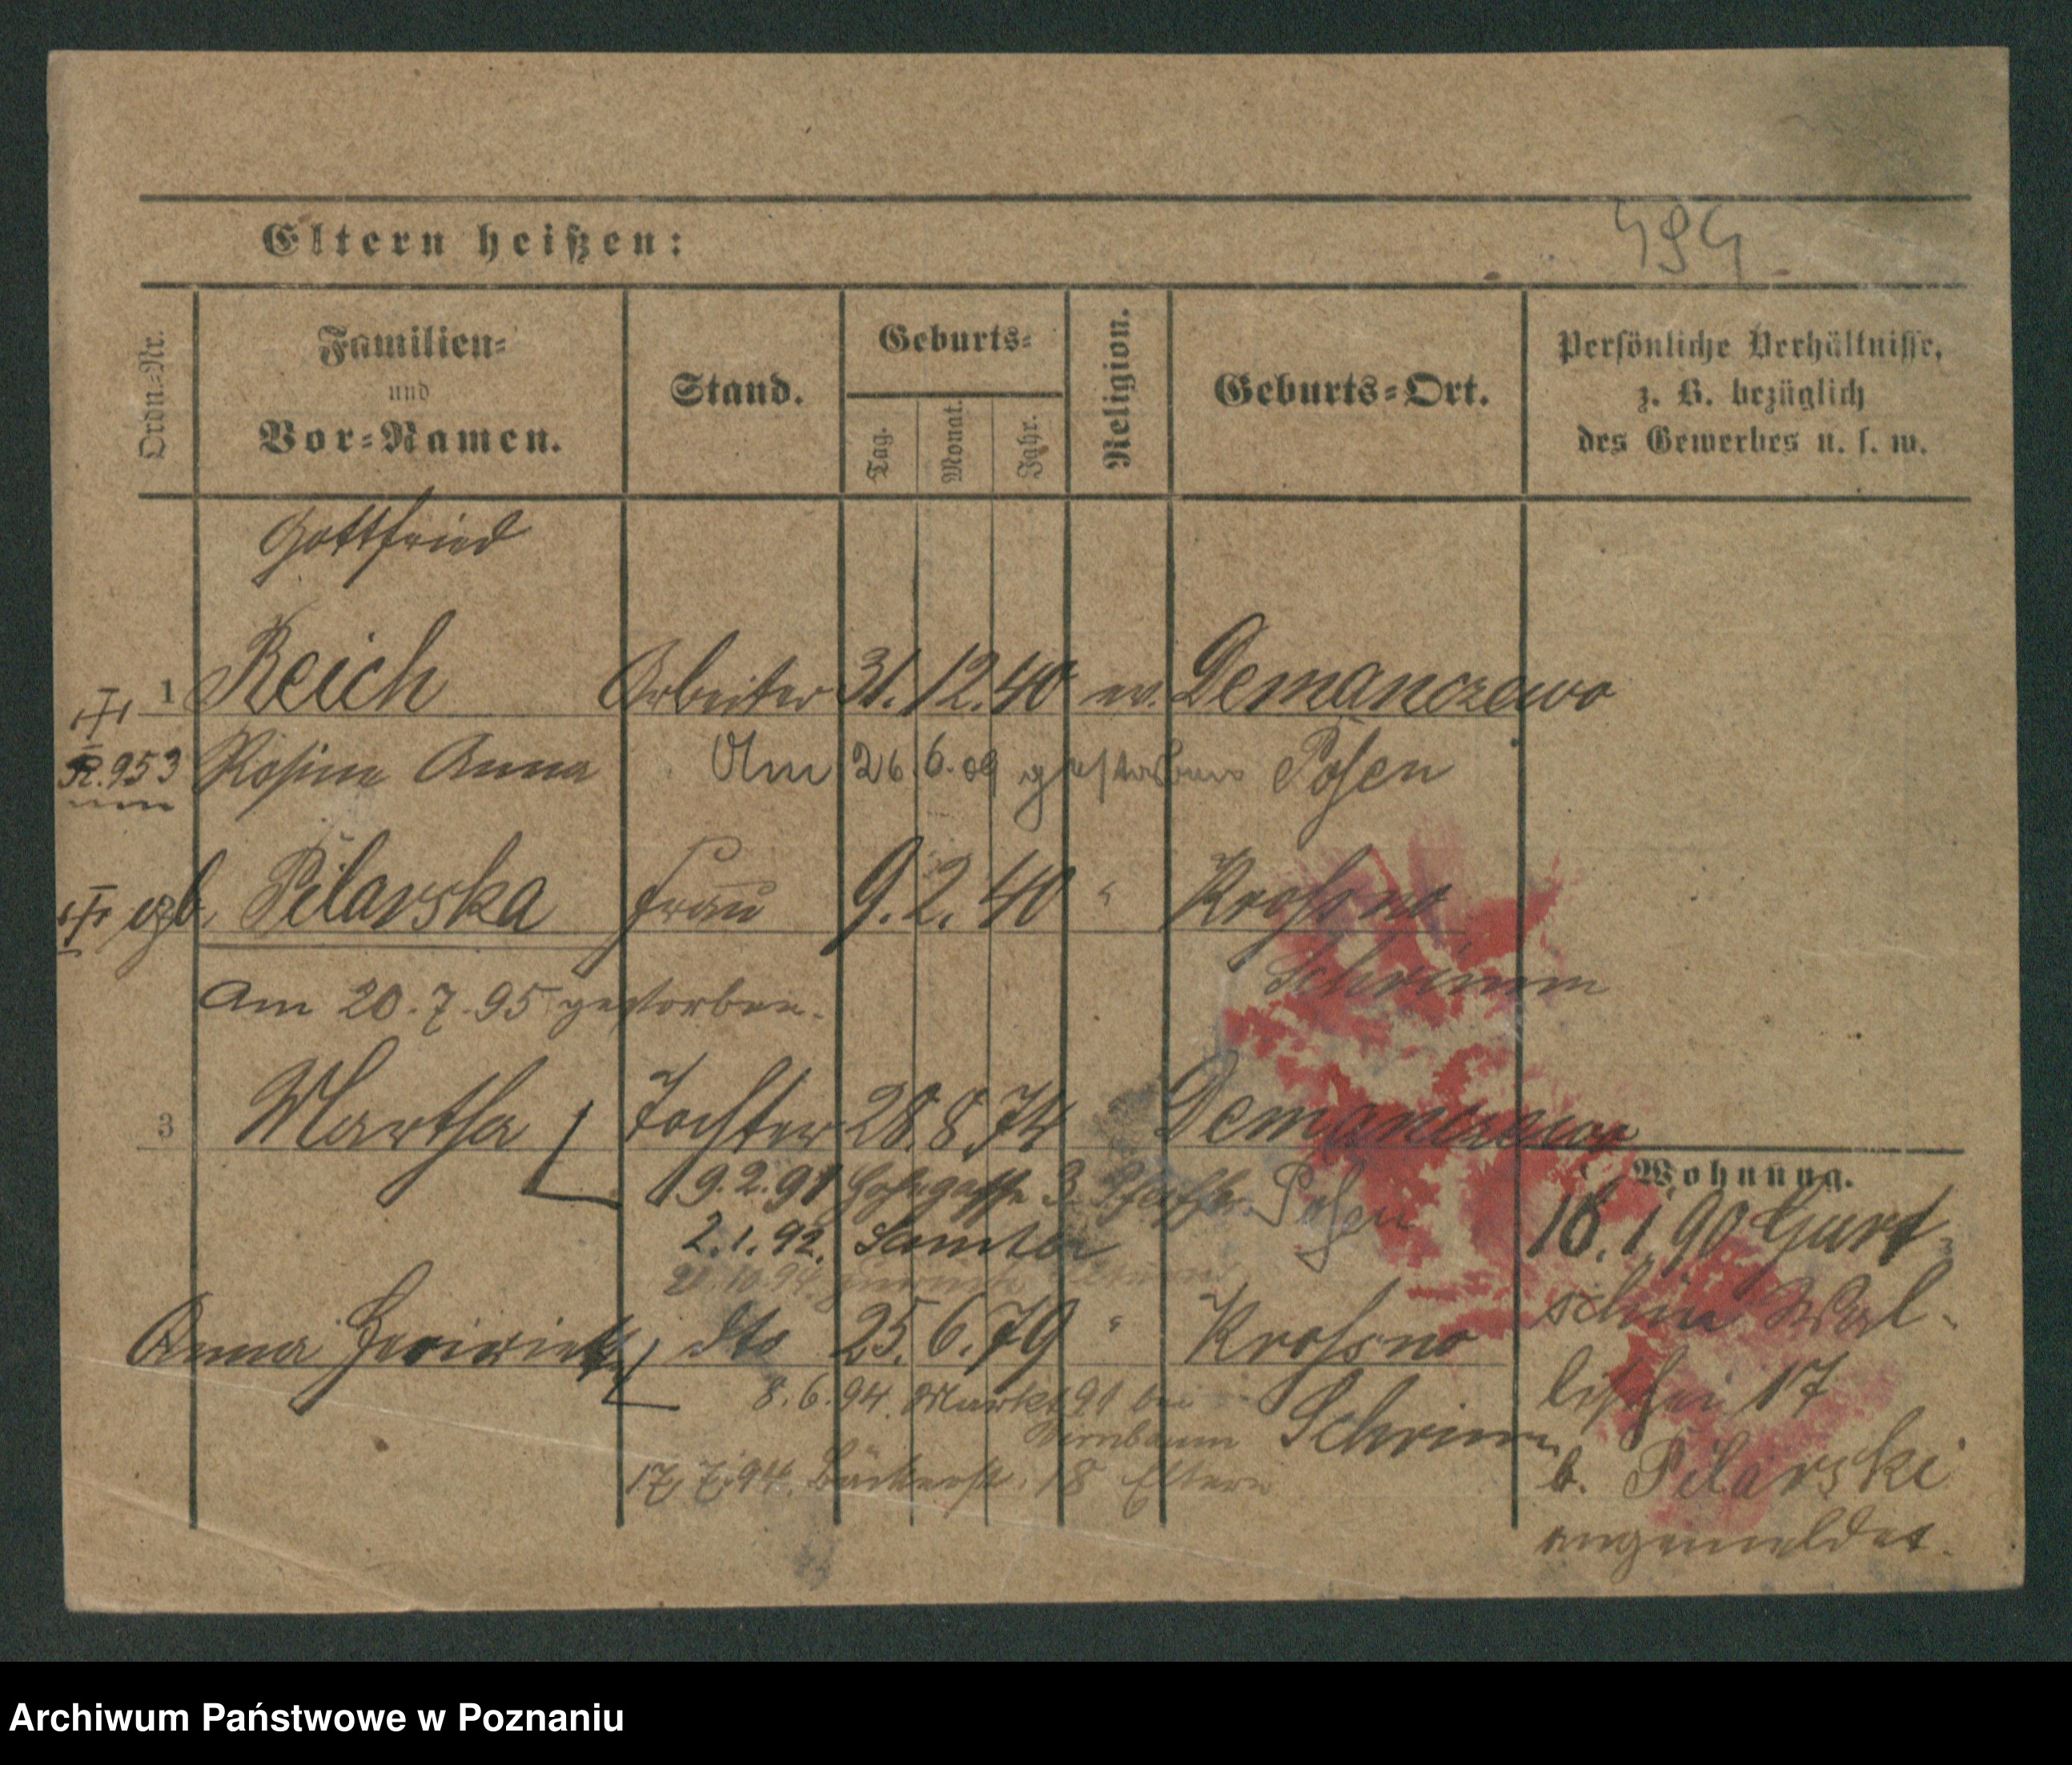 494
Eltern heißen:
Ordn.-Nr.
Familien-
und
Vor-Namen.
Stand.
Geburts-
Tag.
Monat.
Jahr.
Religion.
Geburts-Ort.
Persönliche Verhältnisse,
z. B. bezüglich
des Gewerbes u. s. w.
Gottfried
1 Reich Arbeiter 31. 12. 40 ev. Demanczewo
R. 953 Rosina Anna Am 26. 6. 09 gestorben Posen
geb. Pilarska Frau 9. 2. 40 " Krossno
Schrimm
Am 20. 7. 95 gestorben.
3 Martha Tochter 28. 8. 74 Demanczewo
Wohnung.
19. 2. 91 3 Posen
2. 1. 92. Samter
Anna dto 25. 6. 79 " Krossno
8. 6. 94. Markt 91 bei
Birnbaum Schrimm
17. 7. 94. Bäckerstr. 18 Eltern
16. 1. 90 Gurt-
schin Wal-
lischei 17
b. Pilarski
angemeldet.
Archiwum Państwowe w Poznaniu